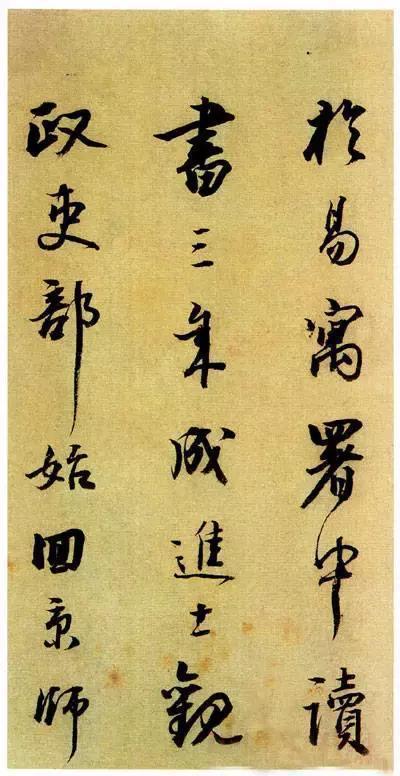 於易寓署中讀
書三年成進士觀
政吏部始回京師